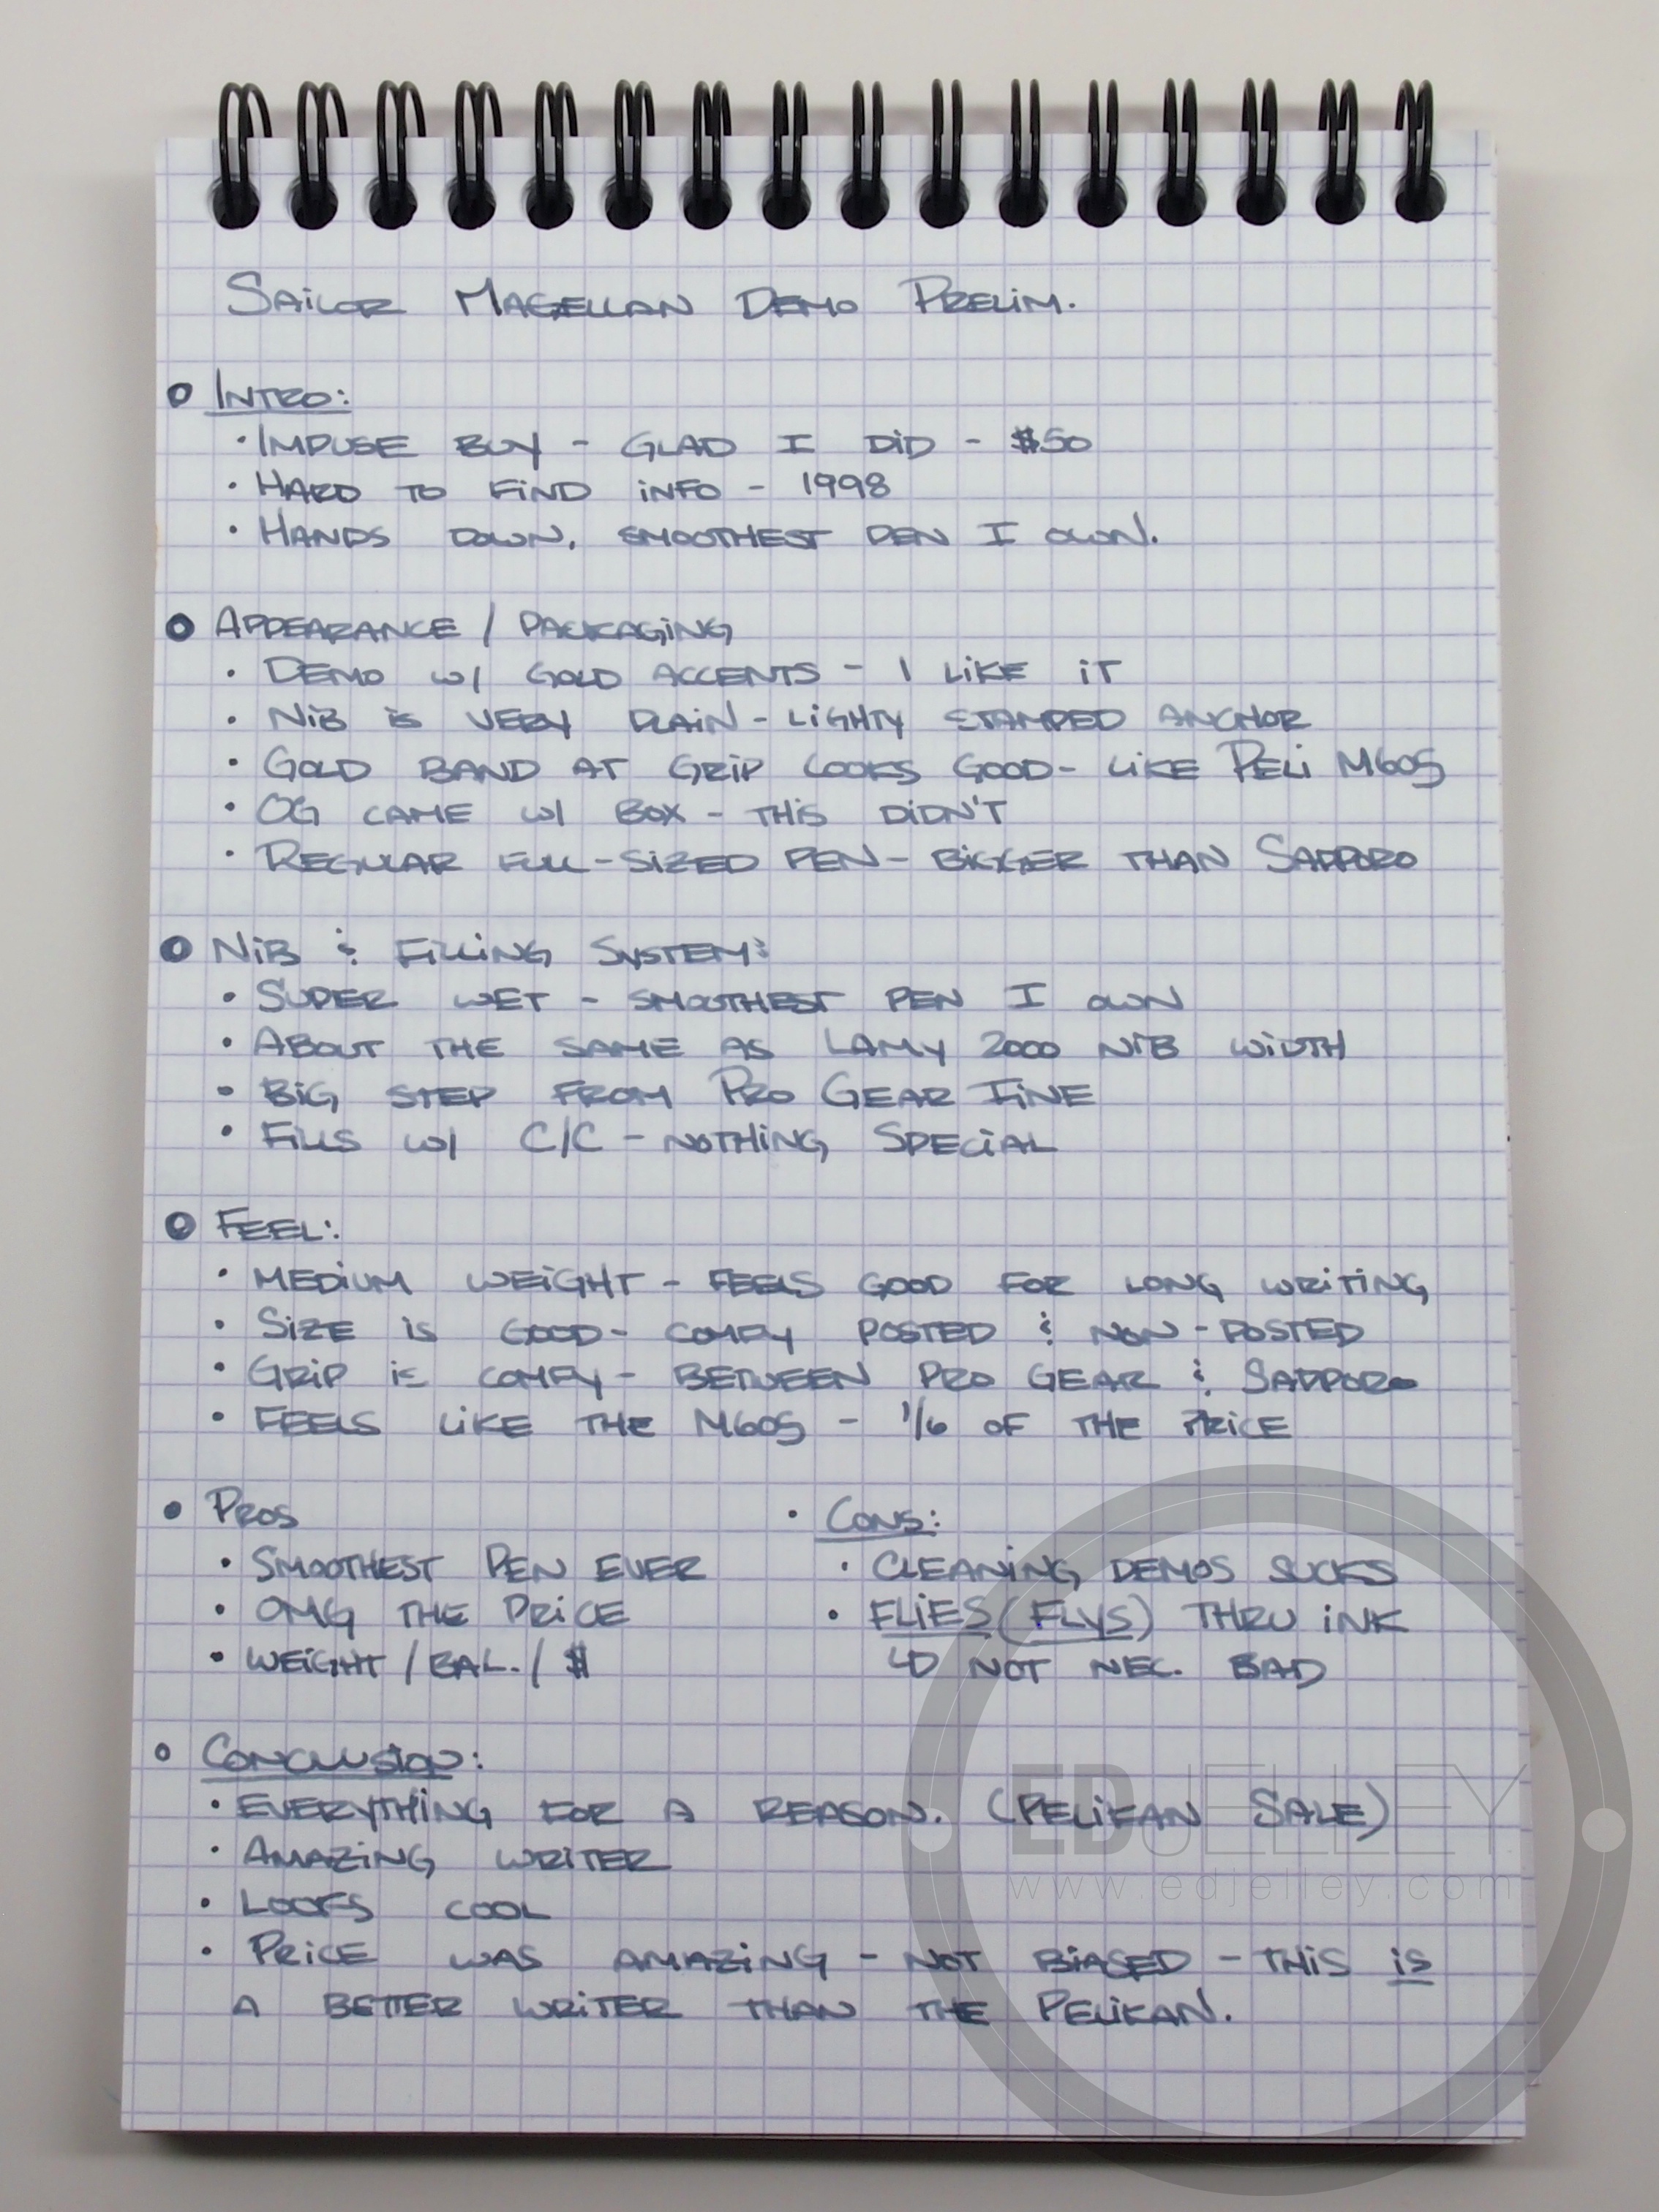 SAILOR MAGELLAN DEMO PRELIM.
INTRO:
• IMPUSE BUY - GLAD I DID - $50
• HARD TO FIND INFO - 1998
• HANDS DOWN, SMOOTHEST PEN I OWN.
APPEARANCE / PACKAGING
• DEMO W/ GOLD ACCENTS - I LIKE IT
• NIB IS VERY PLAIN - LIGHTY STAMPED ANCHOR
• GOLD BAND AT GRIP LOOKS GOOD - LIKE PELI M605
• OG CAME W/ BOX - THIS DIDN'T
• REGULAR FULL-SIZED PEN - BIGGER THAN SAPPORO
NIB & FILLING SYSTEM:
• SUPER WET - SMOOTHEST PEN I OWN
• ABOUT THE SAME AS LAMY 2000 NIB WIDTH
• BIG STEP FROM PRO GEAR FINE
• FILLS W/ C/C - NOTHING SPECIAL
FEEL:
• MEDIUM WEIGHT - FEELS GOOD FOR LONG WRITING
• SIZE IS GOOD - COMFY POSTED & NON-POSTED
• GRIP IS COMFY - BETWEEN PRO GEAR & SAPPORO
• FEELS LIKE THE M605 - 1/6 OF THE PRICE
• PROS
• SMOOTHEST PEN EVER
• OMG THE PRICE
• WEIGHT / BAL. / $
• CONS:
• CLEANING DEMOS SUCKS
• FLIES (FLYS) THRU INK
↳ NOT NEC. BAD
CONCLUSION:
• EVERYTHING FOR A REASON. (PELIKAN SALE)
• AMAZING WRITER
• LOOKS COOL
• PRICE WAS AMAZING - NOT BIASED - THIS IS
A BETTER WRITER THAN THE PELIKAN.
EDJELLEY
www.edjelley.com